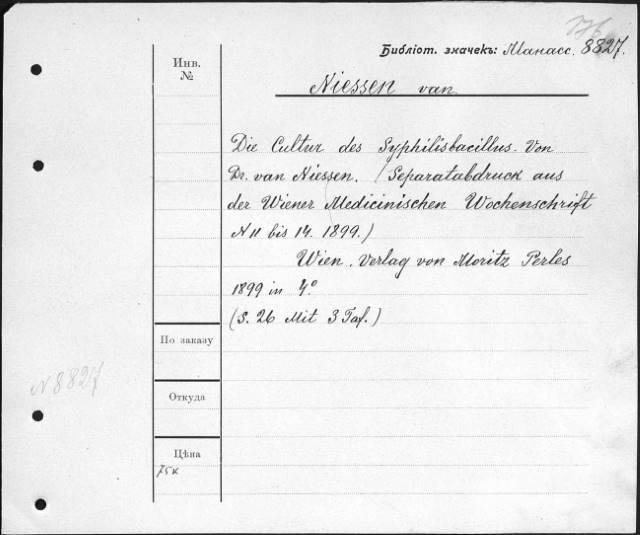 Библіот. значекъ: Манасс. 8827.
Инв.
№
Niessen van
Die Cultur des Syphilisbacillus. Von
Dr. van Niessen. (Separatabdruck aus
der Wiener Medicinischen Wochenschrift
N 11 bis 14. 1899.)
Wien. Verlag von Moritz Perles
1899 in 4°
(S. 26 Mit 3 Taf.)
По заказу
N 8827
Откуда
Цѣна
75к